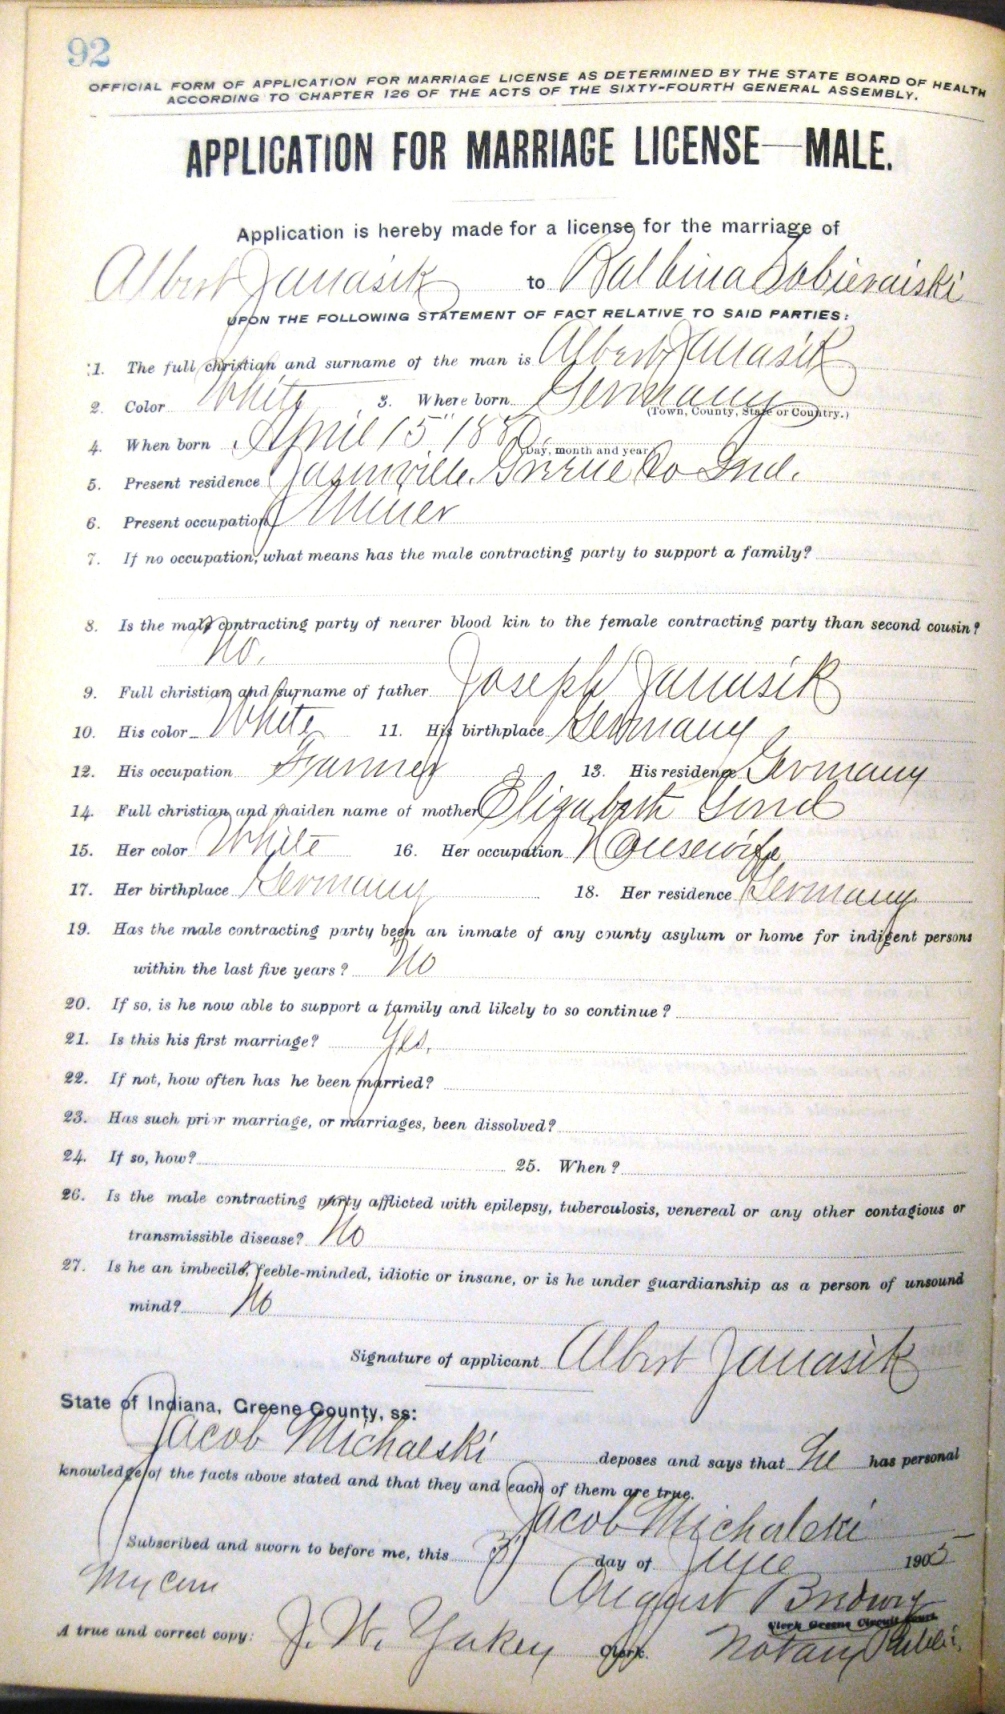 92
OFFICIAL FORM OF APPLICATION FOR MARRIAGE LICENSE AS DETERMINED BY THE STATE BOARD OF HEALTH
ACCORDING TO CHAPTER 126 OF THE ACTS OF THE SIXTY-FOURTH GENERAL ASSEMBLY.
APPLICATION FOR MARRIAGE LICENSE—MALE.
Application is hereby made for a license for the marriage of
Albert Janasik to Balbina Sobieraiski
UPON THE FOLLOWING STATEMENT OF FACT RELATIVE TO SAID PARTIES:
1. The full christian and surname of the man is Albert Janasik
2. Color White 3. Where born Germany
(Town, County, State or Country.)
4. When born April 15" 1880.
(Day, month and year)
5. Present residence Jasonville. Greene Co Ind.
6. Present occupation Miner
7. If no occupation, what means has the male contracting party to support a family?
8. Is the male contracting party of nearer blood kin to the female contracting party than second cousin?
No.
9. Full christian and surname of father Joseph Janasik
10. His color White 11. His birthplace Germany
12. His occupation Farmer 13. His residence Germany
14. Full christian and maiden name of mother Elizabeth
15. Her color White 16. Her occupation Housewife
17. Her birthplace Germany 18. Her residence Germany
19. Has the male contracting party been an inmate of any county asylum or home for indigent persons
within the last five years? No
20. If so, is he now able to support a family and likely to so continue?
21. Is this his first marriage? Yes.
22. If not, how often has he been married?
23. Has such prior marriage, or marriages, been dissolved?
24. If so, how? 25. When?
26. Is the male contracting party afflicted with epilepsy, tuberculosis, venereal or any other contagious or
transmissible disease? No
27. Is he an imbecile, feeble-minded, idiotic or insane, or is he under guardianship as a person of unsound
mind? No
Signature of applicant Albert Janasik
State of Indiana, Greene County, ss:
Jacob Michalski deposes and says that He has personal
knowledge of the facts above stated and that they and each of them are true.
Jacob Michalski
Subscribed and sworn to before me, this day of June 1905
My com August
A true and correct copy: J. W. Yakey Clerk. Clerk Greene Circuit Court.
Notary Public.